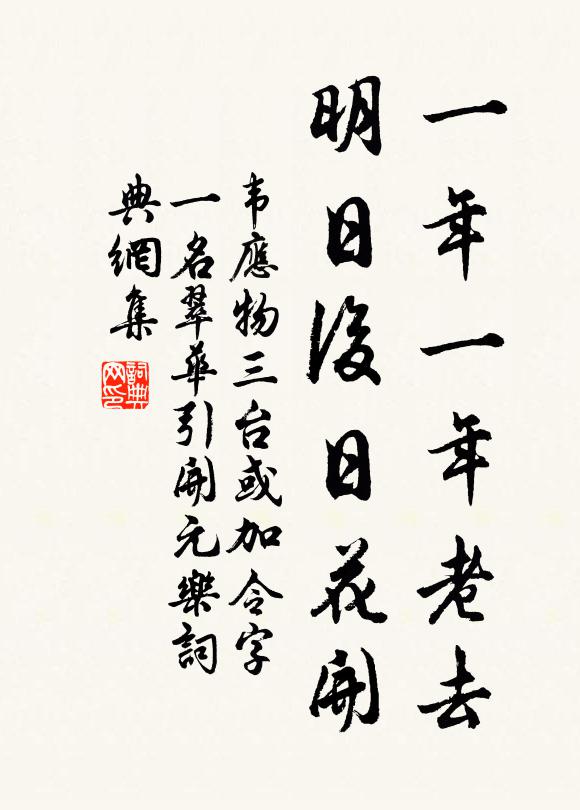 一年一年老去
明日後日花開
韦應物三台或加令字
一名翠華引開元樂詞
典網集
詞典
网印